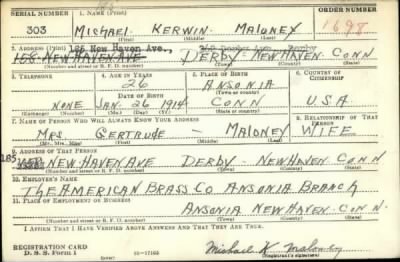 SERIAL NUMBER 1. NAME (Print) 
303 MICHAEL KERWIN MALONEY 1698
(First) (Middle) (Last)
2. ADDRESS (Print) 185 New Haven Ave.,
188 NEW HAVEN AVE DERBY NEW HAVEN CONN
(Number and street or R. F. D. number) (Town) (County) (State)
3. TELEPHONE 4. AGE IN YEARS 5. PLACE OF BIRTH 6. COUNTRY OF CITIZENSHIP
26 ANSONIA
DATE OF BIRTH (Town or county)
NONE JAN. 26 1914 CONN U.S.A
(Exchange) (No.) (Mo.) (Day) (Yr.) (State or country)
7. NAME OF PERSON WHO WILL ALWAYS KNOW YOUR ADDRESS 8. RELATIONSHIP OF THAT PERSON
MRS. GERTRUDE - MALONEY WIFE
(Mr., Mrs., Miss) (First) (Middle) (Last)
9. ADDRESS OF THAT PERSON
185 NEW HAVEN AVE DERBY - NEW HAVEN CONN
(Number and street or R. F. D. number) (Town) (County) (State)
10. EMPLOYER'S NAME
THE AMERICAN BRASS CO ANSONIA BRANCH
11. PLACE OF EMPLOYMENT OR BUSINESS
ANSONIA NEW HAVEN CONN.
(Number and street or R. F. D. number) (Town) (County) (State)
I AFFIRM THAT I HAVE VERIFIED ABOVE ANSWERS AND THAT THEY ARE TRUE.
REGISTRATION CARD
D. S. S. Form 1 16-17105 Michael K Maloney
(Registrant's signature)